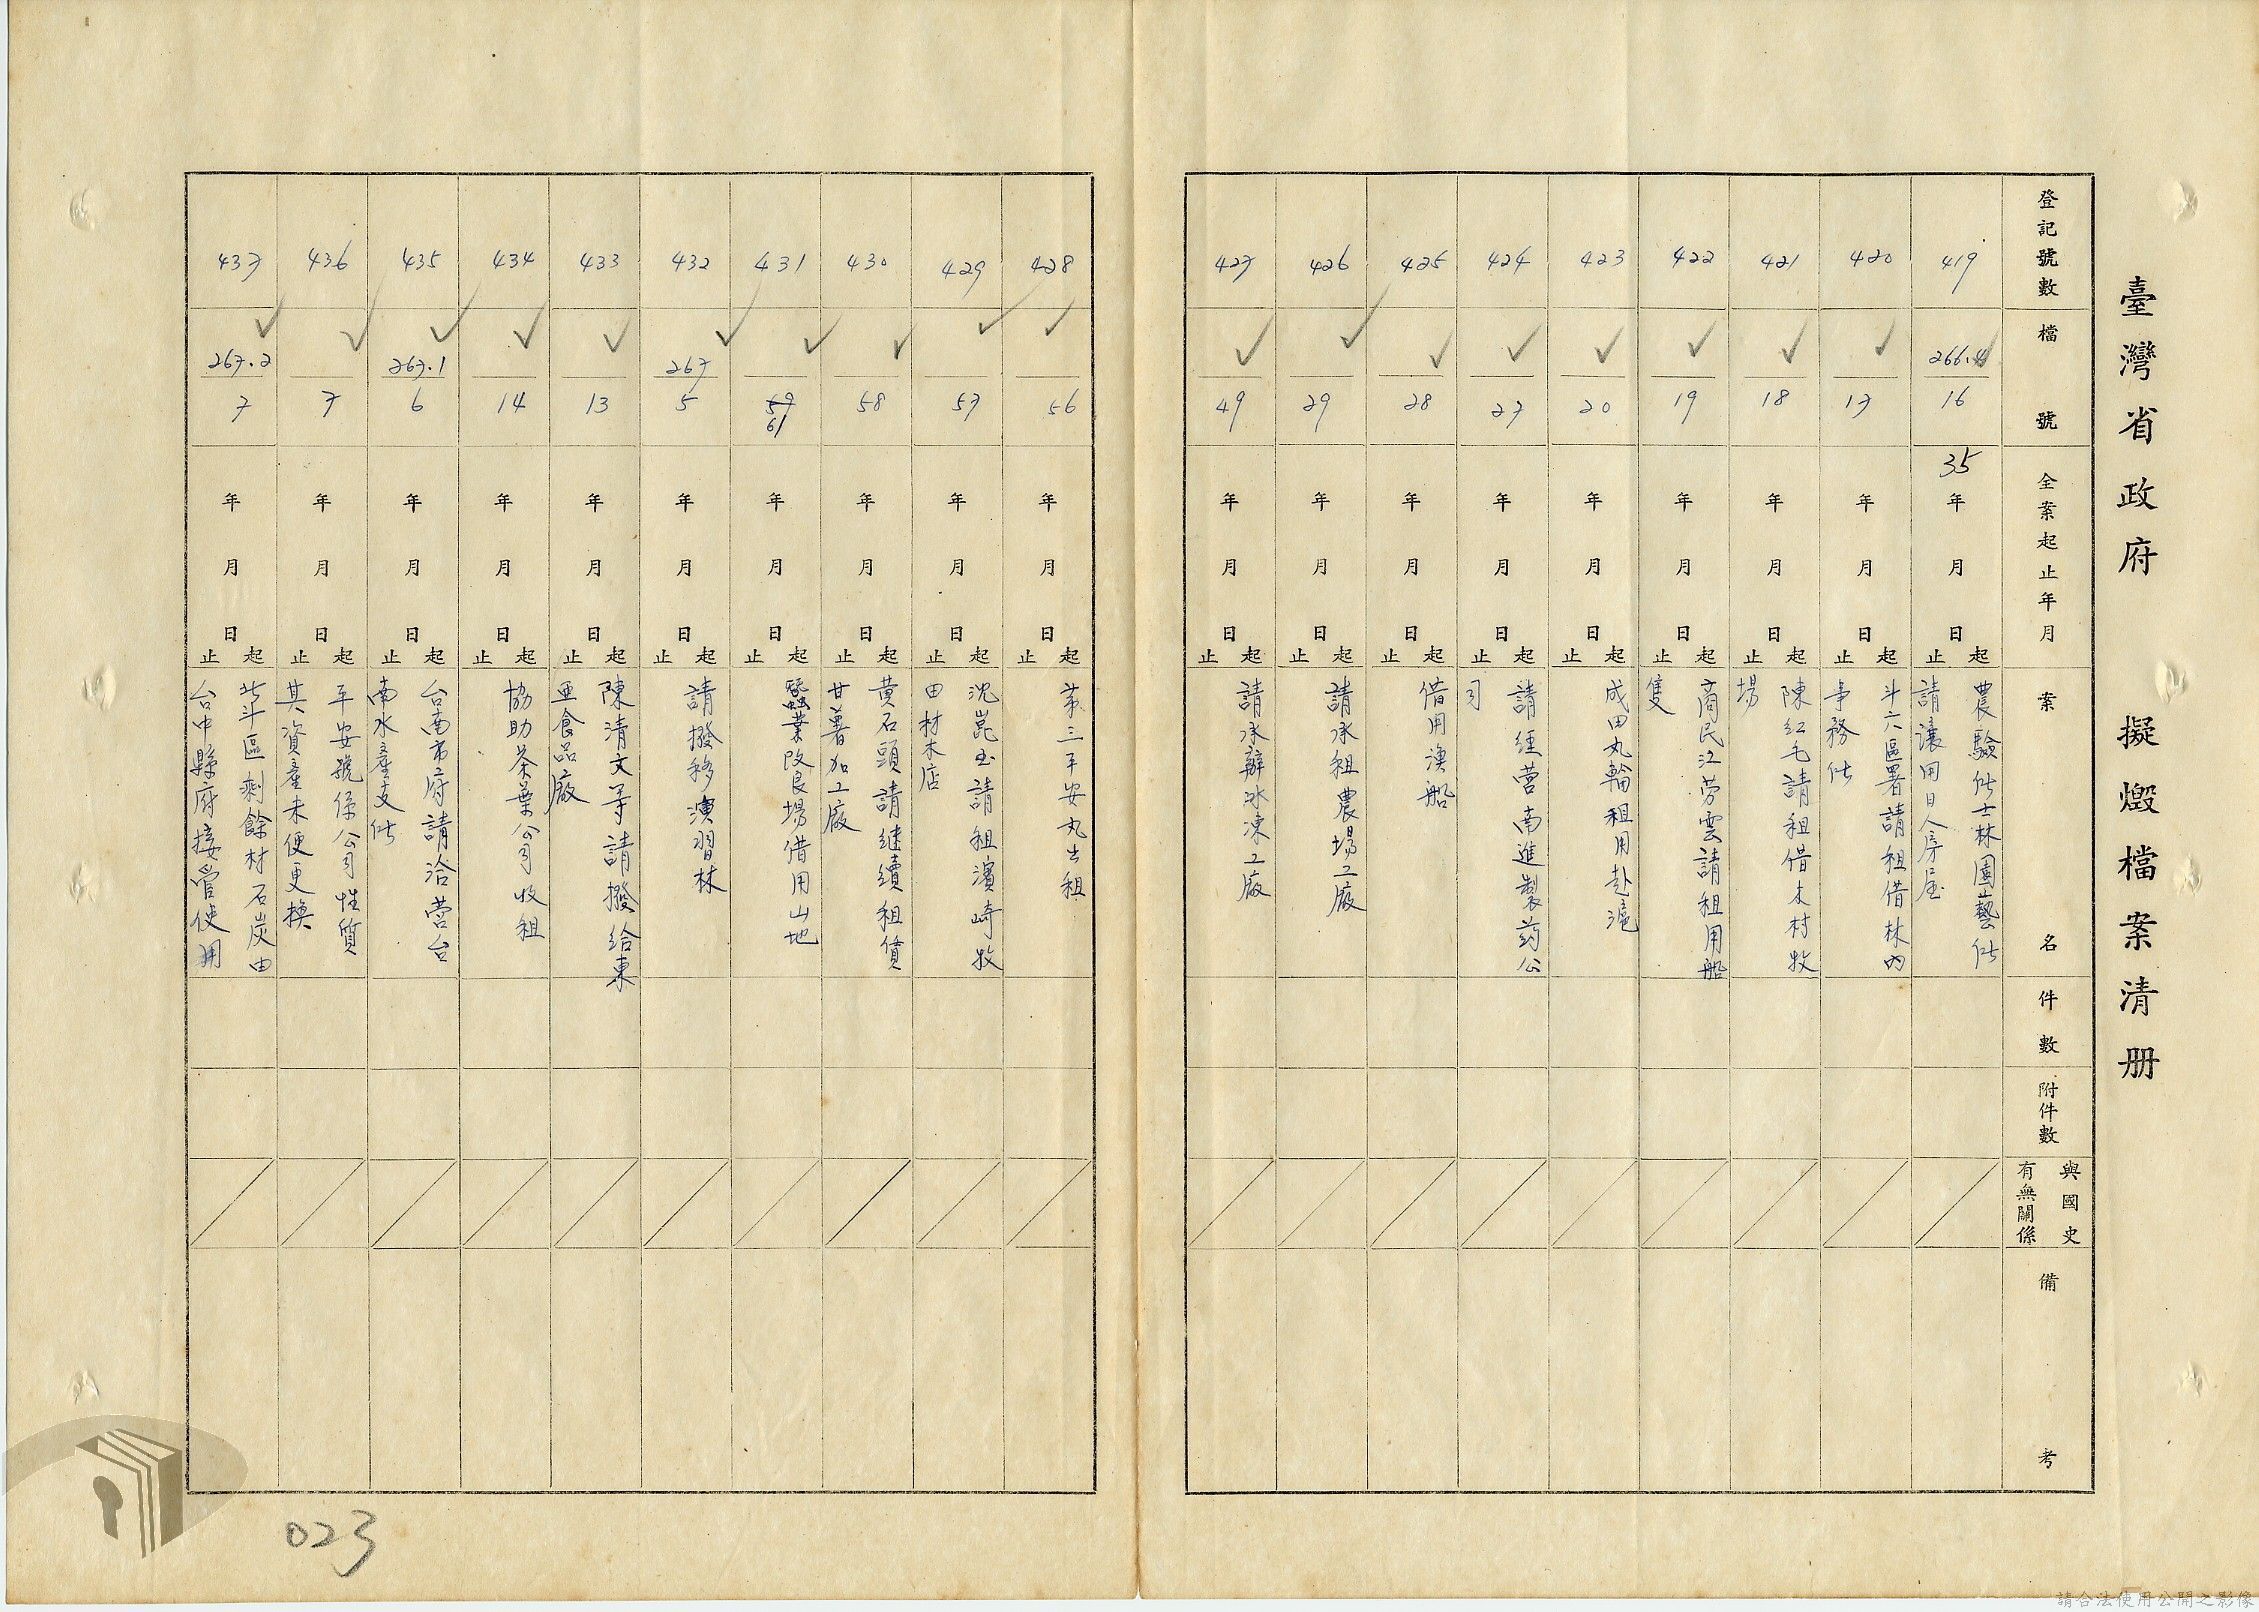 臺灣省政府 擬燬檔案清册
登記號數
檔號
全案起止年月
案名
件數
附件數
與國史
有無關係
備考
419
266.4
16
35年月日起止
農驗所士林園藝所
請讓用日人房屋
420
17
年月日起止
斗六區署請租借林內
事務所
421
18
年月日起止
陳紅毛請租借木村牧
場
422
19
年月日起止
商民江勞雲請租用船
隻
423
20
年月日起止
成田丸輪租用赴滬
424
27
年月日起止
請經营南進製药公
司
425
28
年月日起止
借用漁船
426
29
年月日起止
請承租農場工廠
427
49
年月日起止
請承辦冰凍工廠
428
56
年月日起止
第三平安丸出租
429
57
年月日起止
沈崑玉請租濱崎牧
田材木店
430
58
年月日起止
黄石頭請継續租賃
甘薯加工廠
431
59
61
年月日起止
蠶業改良場借用山地
432
267
5
年月日起止
請撥移演習林
433
13
年月日起止
陳清文等請撥給東
亜食品廠
434
14
年月日起止
協助茶葉公司收租
435
267.1
6
年月日起止
台南市府請洽营台
南水產支所
436
7
年月日起止
平安號係公司性質
其資產未便更換
437
267.2
7
年月日起止
北斗區剩餘材石炭由
台中縣府接管使用
023
請合法使用公開之影像